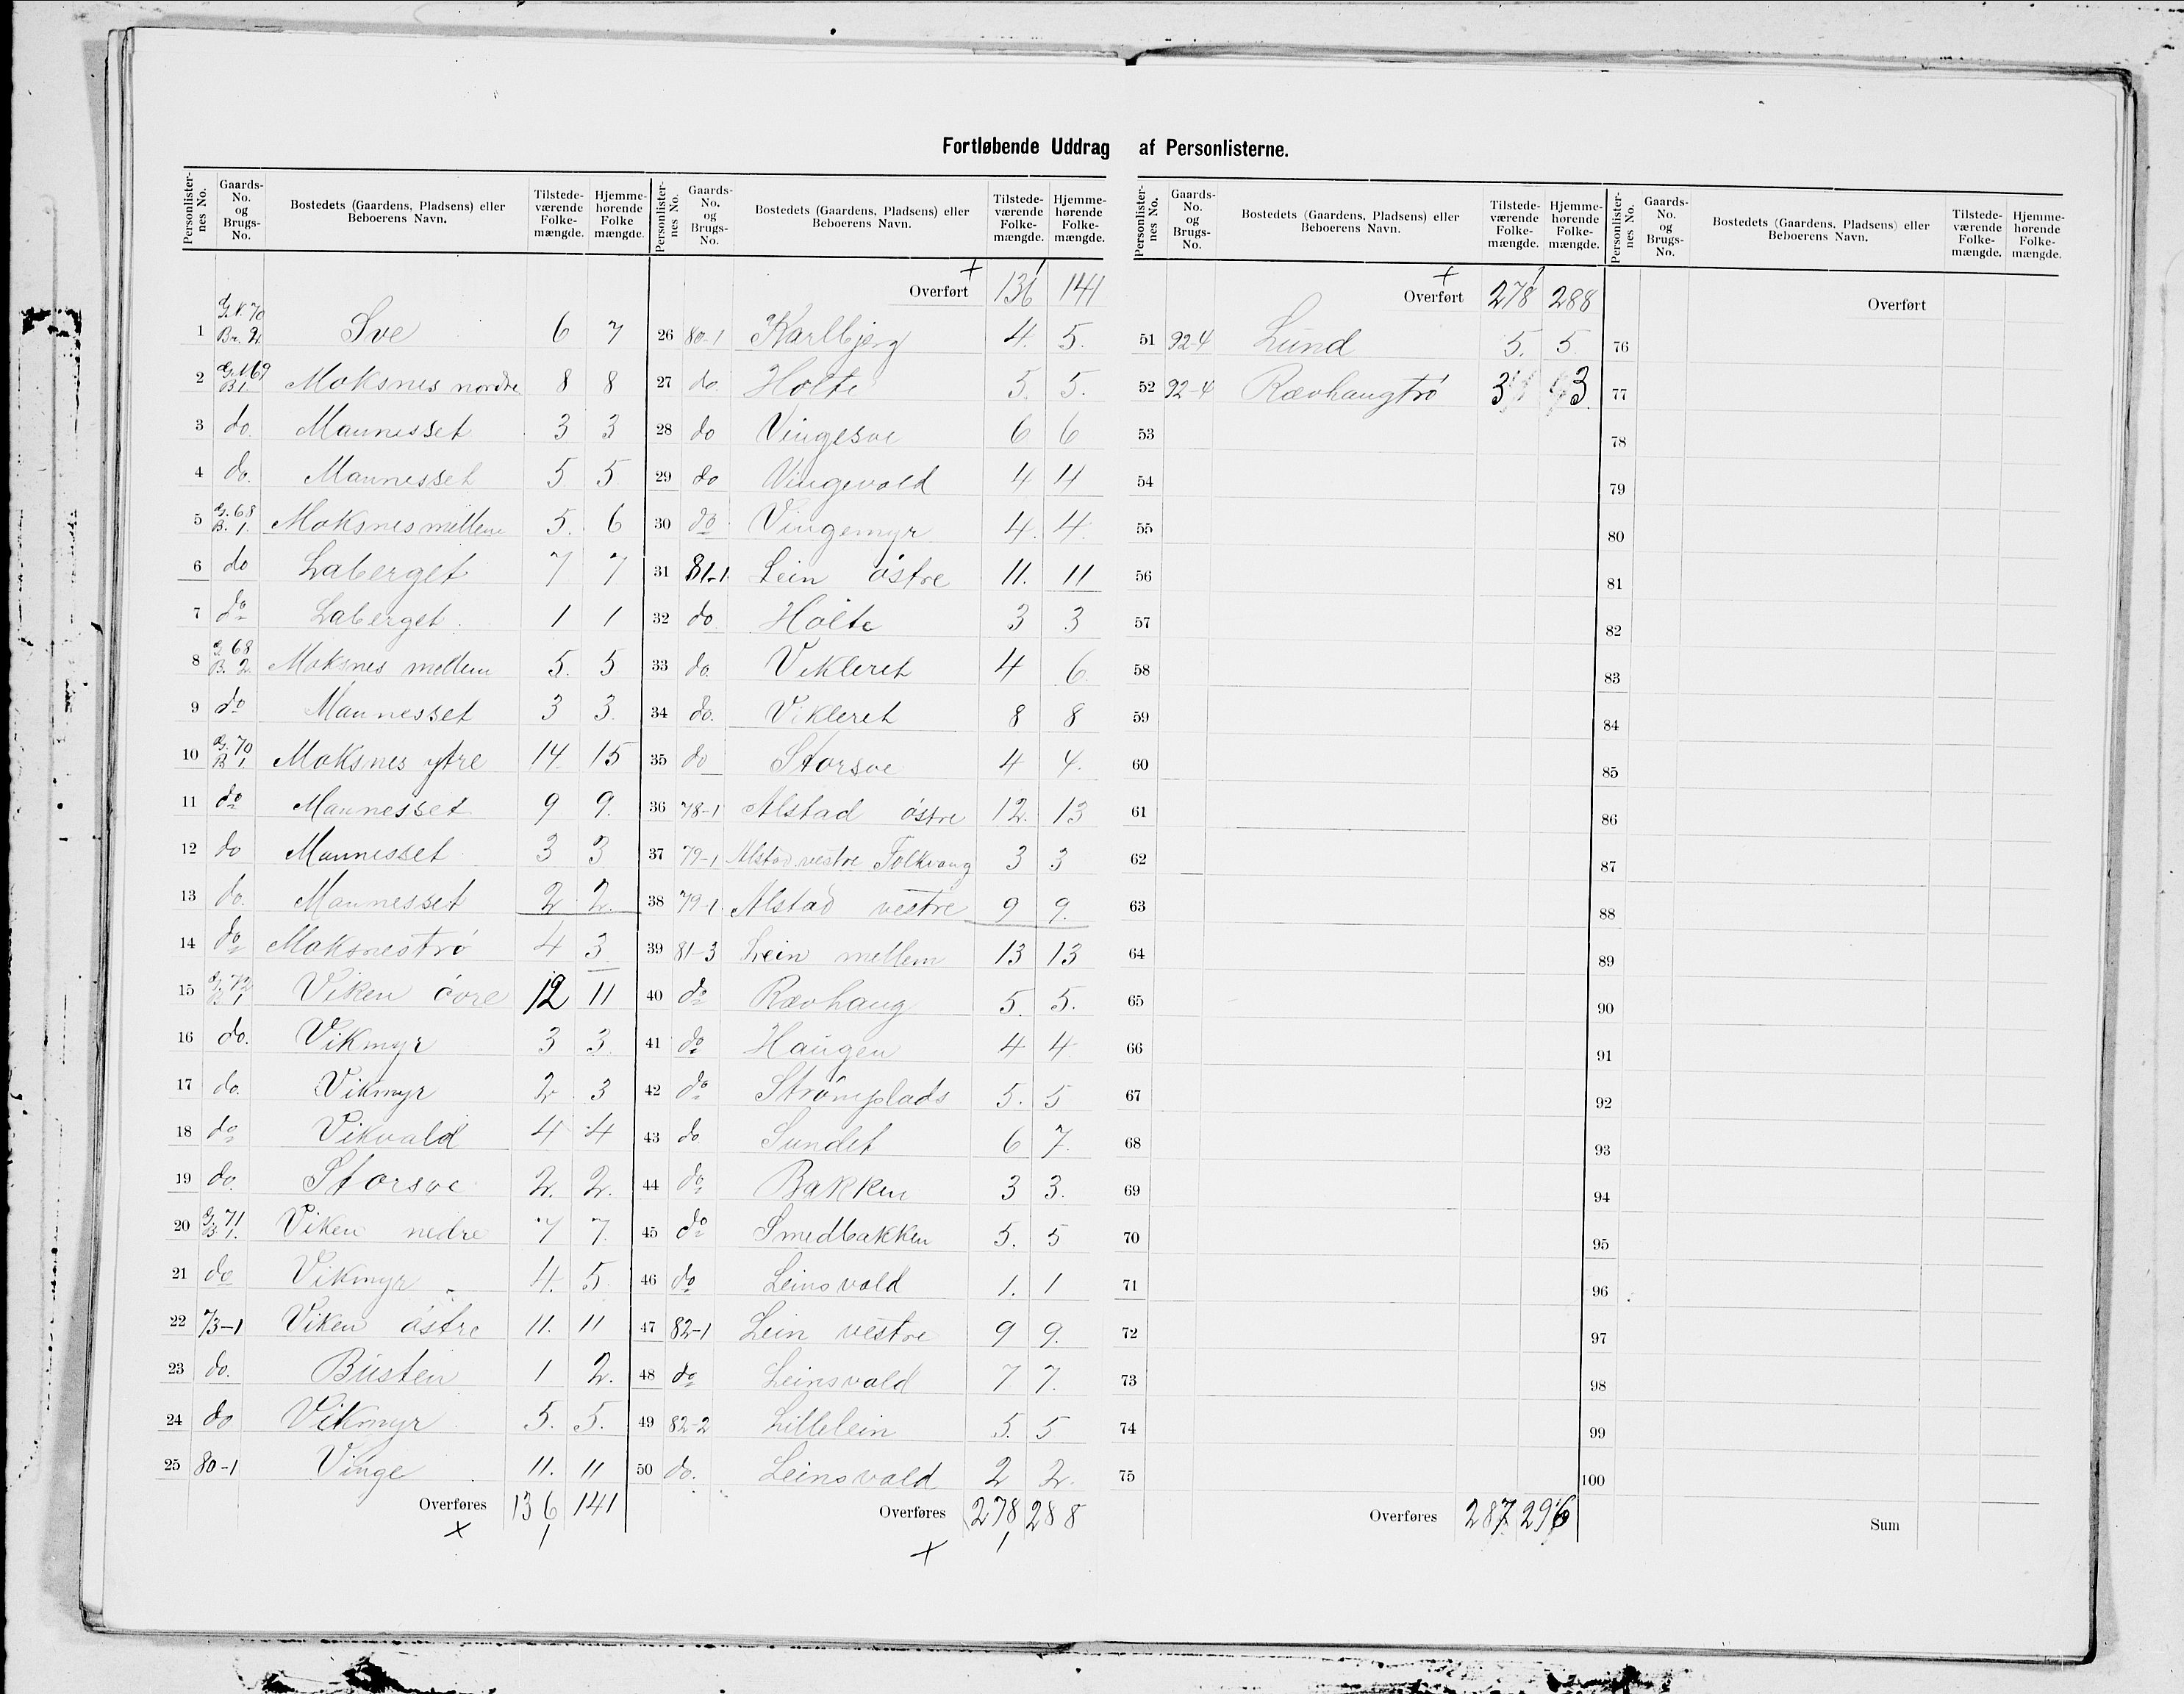 Fortløbende Uddrag af Personlisterne.
Personlisternes No. Gaards-No. og Brugs-No. Bostedets (Gaardens, Pladsens) eller Beboerens Navn. Tilstedeværende Folkemængde. Hjemmehørende Folkemængde.
1 G.N. 70 Br. 2 Sve 6 7
2 G.N. 69 B 1. Moksnes nordre 8 8
3 do. Maunesset 3 3
4 do. Maunesset 5 5
5 G. 68 B. 1. Moksnes mellem 5. 6
6 do Laberget 7 7
7 do Laberget 1 1
8 G 68 B. 2 Moksnes mellem 5. 5
9 do Maunesset 3 3.
10 G. 70 B 1. Moksnes ytre 14 15
11 do Maunesset 9 9.
12 do Maunesset 3 3
13 do. Maunesset 2 2.
14 do Moksnestrø 4 3
15 G. 72 B 1 Viken øvre 12 11
16 do. Vikmyr 3 3
17 do. Vikmyr 2 3
18 do Vikvald 4 4
19 do. Storsve 2. 2.
20 G. 71 B. 1. Viken nedre 7 7.
21 do Vikmyr 4. 5.
22 73-1 Viken østre 11. 11
23 do. Busten 1 2.
24 do Vikmyr 5. 5.
25 80-1 Vinge 11. 11
Overføres 136 141
Personlisternes No. Gaards-No. og Brugs-No. Bostedets (Gaardens, Pladsens) eller Beboerens Navn. Tilstedeværende Folkemængde. Hjemmehørende Folkemængde.
Overført 136 141
26 80-1 Karlbjerg 4. 5.
27 do. Holte 5. 5.
28 do Vingesve 6 6
29 do Vingevald 4 4
30 do Vingemyr 4. 4.
31 81-1 Lein østre 11. 11
32 do Holte 3 3
33 do. Vikleret 4 6
34 do. Vikleret 8 8
35 do Storsve 4 4.
36 78-1 Alstad østre 12. 13
37 79-1 Alstad vestre Folkvang 3 3
38 79-1. Alstad vestre 9 9.
39 81-3 Lein mellem 13 13
40 do Rævhaug 5. 5.
41 do Haugen 4 4
42 do Strømplads 5. 5
43 do. Sundet 6 7.
44 do Bakken 3 3.
45 do Smedbakken 5. 5
46 do Leinsvald 1. 1
47 82-1 Lein vestre 9 9.
48 do Leinsvald 7 7.
49 82-2 Lillelein 5. 5
50 do. Leinsvald 2 2.
Overføres 278 288
Personlisternes No. Gaards-No. og Brugs-No. Bostedets (Gaardens, Pladsens) eller Beboerens Navn. Tilstedeværende Folkemængde. Hjemmehørende Folkemængde.
Overført 278 288
51 92-4 Lund 5. 5
52 92-4 Rævhaugtrø 3 3
53
54
55
56
57
58
59
60
61
62
63
64
65
66
67
68
69
70
71
72
73
74
75
Overføres 287 296
Personlisternes No. Gaards-No. og Brugs-No. Bostedets (Gaardens, Pladsens) eller Beboerens Navn. Tilstedeværende Folkemængde. Hjemmehørende Folkemængde.
Overført
76
77
78
79
80
81
82
83
84
85
86
87
88
89
90
91
92
93
94
95
96
97
98
99
100
Sum